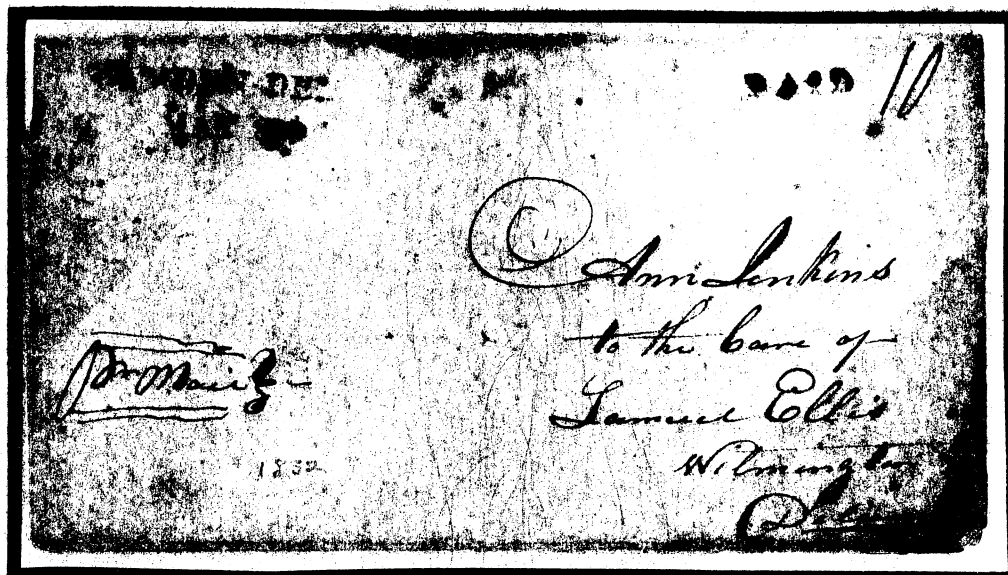 DE.
PAID 10
Ann Jenkins
to the Care of
Samuel Ellis
Wilmington
Pr Mail
1832